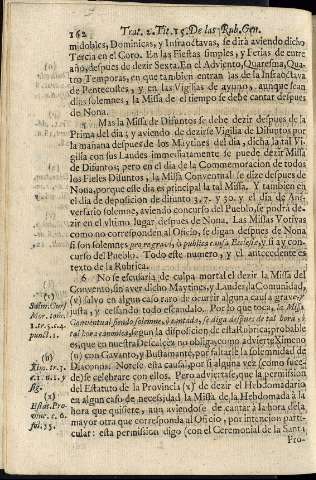 162 Trat. 2. Tit. 15. De las Rub. Gen.
midobles, Dominicas, y Infraoctavas, se dirà aviendo dicho
Tercia en el Coro. En las Fiestas simples, y Ferias de entre
año, despues de dezir Sexta. En el Adviento, Quaresma, Qua-
tro Temporas, en que tambien entran las de la Infraoctava
de Pentecostes, y en las Vigilias de ayuno, aunque sean
dias solemnes, la Missa de el tiempo se debe cantar despues
de Nona.
5 Mas la Missa de Difuntos se debe dezir despues de la
Prima del dia; y aviendo de dezirse Vigilia de Difuntos por
la mañana despues de los Maytines del dia, dicha la tal Vi-
gilia con sus Laudes immediatamente se puede dezir Missa
de Difuntos; pero en el dia de la Commemoracion de todos
los Fieles Difuntos, la Missa Conventual se dize despues de
Nona, porque este dia es principal la tal Missa. Y tambien en
el dia de deposicion de difunto 3. 7. y 30. y el dia de Ani-
versario solemne, aviendo concurso del Pueblo, se podrà de-
zir en el vltimo lugar, despues de Nona. Las Missas Votivas
como no corresponden al Oficio, se digan despues de Nona
si son solemnes pro re gravi, ò publica causa Ecclesiæ, y si ay con-
curso del Pueblo. Todo este numero, y el antecedente es
texto de la Rubrica.
6 No se escusaria de culpa mortal el dezir la Missa del
Convento, sin aver dicho Maytines, y Laudes, la Comunidad,
(v) salvo en algun caso raro de ocurrir alguna causa grave, y
justa, y cessando todo escandalo. Por lo que toca, à Missa
Conventual siendo solemne, ò cantada, se diga despues de tal hora y
tal hora canonica, segun la disposicion de esta Rubrica; probable
es, que en nuestra Descalcèz no obliga, como advierte Ximeno
(u) con Gavanto, y Bustamante, por faltar le solemnidad de
Diaconos. Notese esta causal, por si alguna vez (como suce-
de) se celebrare con ellos. Pero adviertase, que la permission
del Estatuto de la Provincia (x) de dezir el Hebdomadario
en algun caso de necessidad la Missa de la Hebdomada à la
hora que quisiere, aun aviendose de cantar à la hora de la
mayor otra que corresponda al Oficio, por intencion parti-
cular: esta permission digo (con el Ceremonial de la Santa
Pro-
(v)
Salm. Curs.
Mor. tom.
punct. 1.
(u)
Xim. tr. 3.
sig.
(x)
Estat. Pro-
vinc. c. 6.
fol. 35.